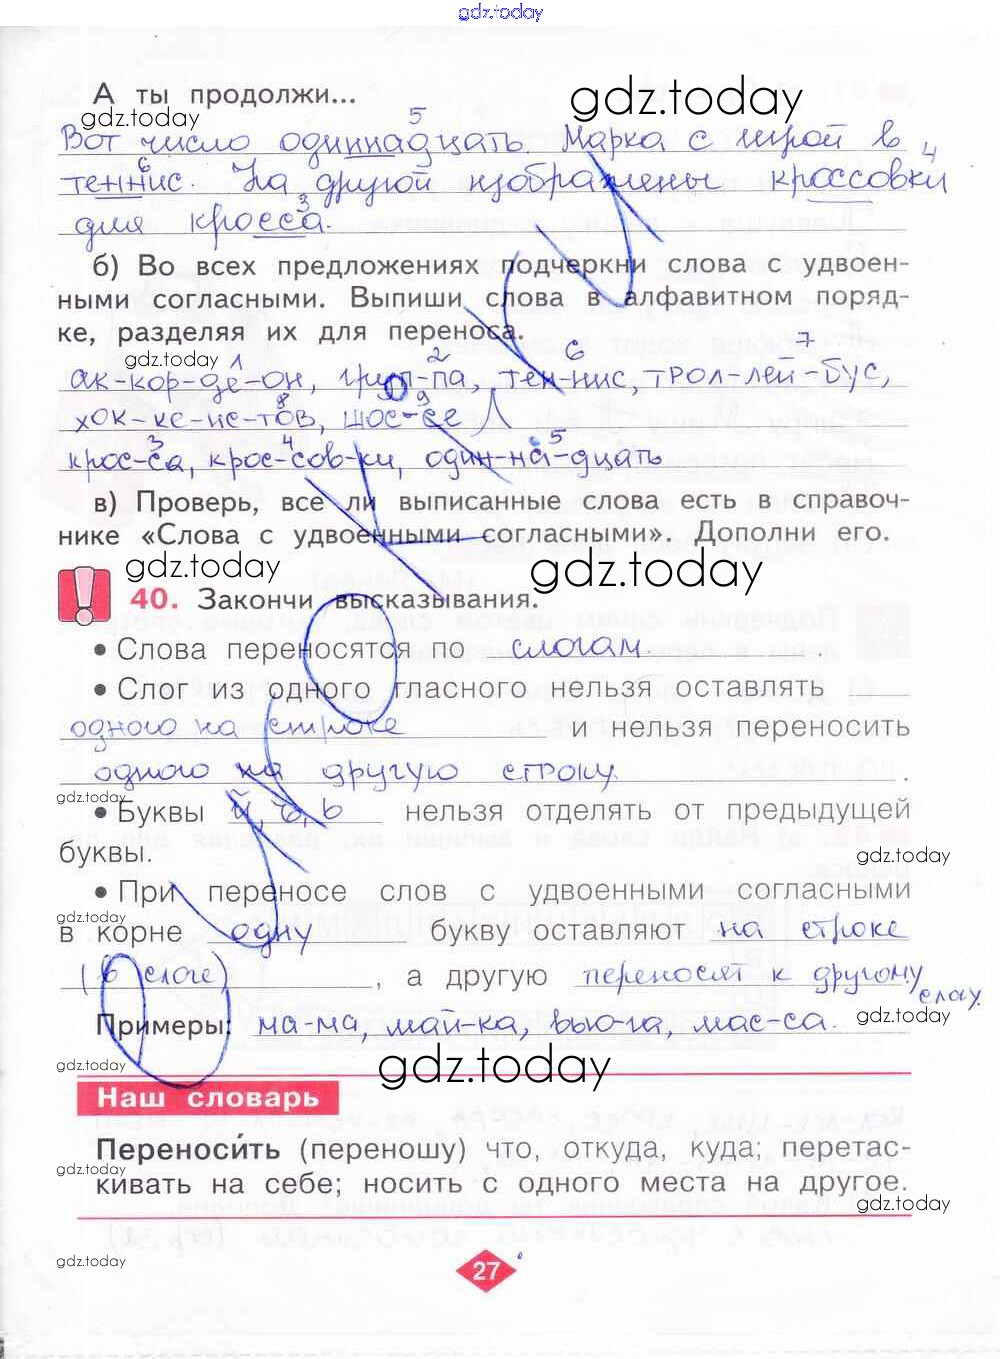 gdz.today
А ты продолжи...
gdz.today
gdz.today
5
Вот число одиннадцать. Марка с игрой в
6 4
теннис. На другой изображены кроссовки
3
для кросса.
б) Во всех предложениях подчеркни слова с удвоен-
ными согласными. Выпиши слова в алфавитном поряд-
ке, разделяя их для переноса.
gdz.today
1 2 6 7
ак-кор-де-он, грип-па, тен-нис, трол-лей-бус,
8 9
хок-ке-ис-тов, шос-се
3 4 5
крос-са, крос-сов-ки, один-на-дцать
в) Проверь, все ли выписанные слова есть в справоч-
нике «Слова с удвоенными согласными». Дополни его.
gdz.today
gdz.today
40. Закончи высказывания.
• Слова переносятся по слогам
• Слог из одного гласного нельзя оставлять
одного на строке и нельзя переносить
одного на другую строку.
gdz.today
• Буквы й, ъ, ь нельзя отделять от предыдущей
буквы.
gdz.today
• При переносе слов с удвоенными согласными
gdz.today
в корне одну букву оставляют на строке
(в слоге), а другую переносят к другому
слогу.
Примеры: ма-ма, май-ка, вью-га, мас-са.
gdz.today
gdz.today
Наш словарь
Переноси́ть (переношу) что, откуда, куда; перетас-
gdz.today
кивать на себе; носить с одного места на другое.
gdz.today
gdz.today
27